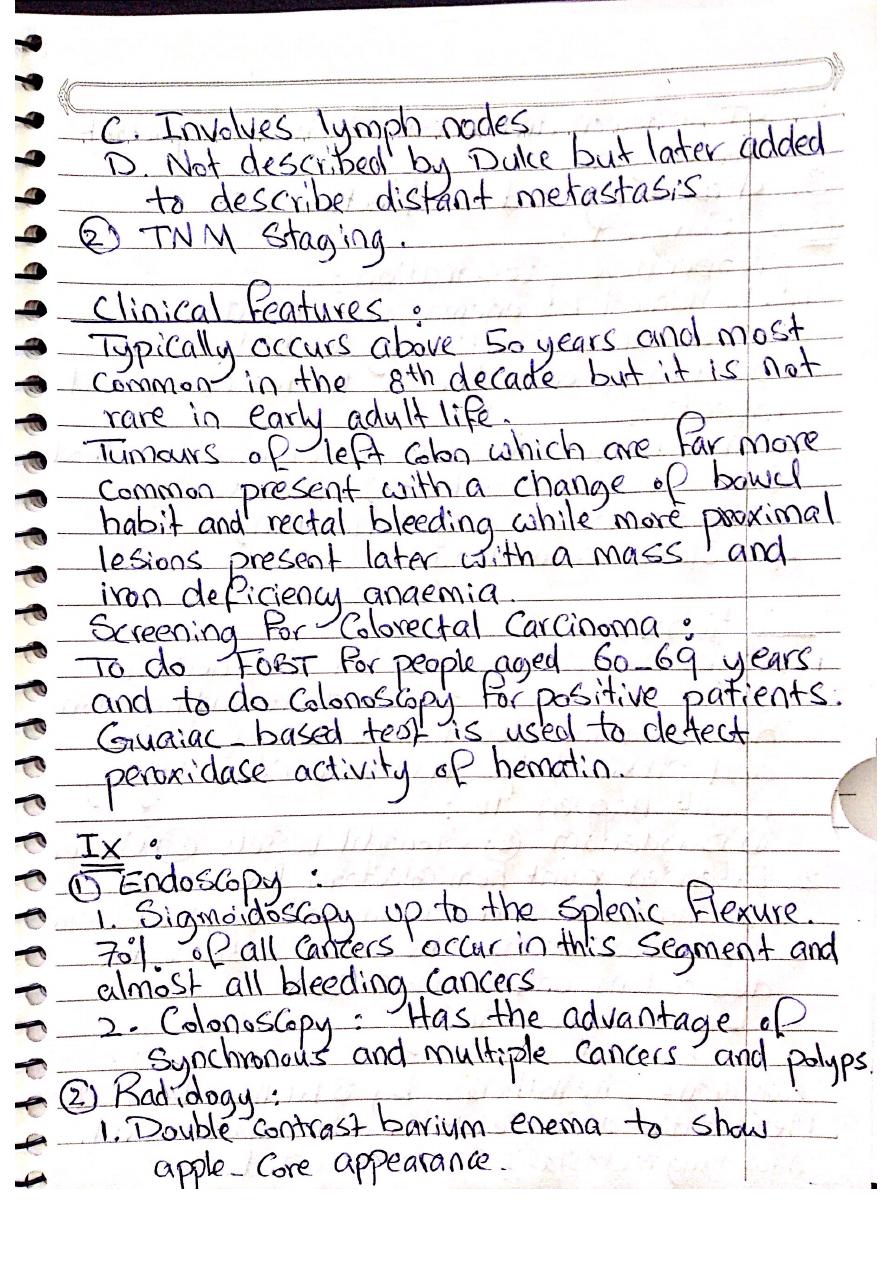 C. Involves lymph nodes
D. Not described by Duke but later added
to describe distant metastasis
② TNM Staging.
Clinical Features :
Typically occurs above 50 years and most
common in the 8th decade but it is not
rare in early adult life.
Tumours of left Colon which are far more
common present with a change of bowel
habit and rectal bleeding while more proximal
lesions present later with a mass and
iron deficiency anaemia.
Screening for Colorectal Carcinoma :
To do FOBT for people aged 60-69 years
and to do Colonoscopy for positive patients.
Guaiac-based test is used to detect
peroxidase activity of hematin.
Ix :
① Endoscopy :
1. Sigmoidoscopy up to the splenic flexure.
70% of all Cancers occur in this segment and
almost all bleeding Cancers
2. Colonoscopy : Has the advantage of
Synchronous and multiple Cancers and polyps.
② Radiology :
1. Double contrast barium enema to show
apple-Core appearance.